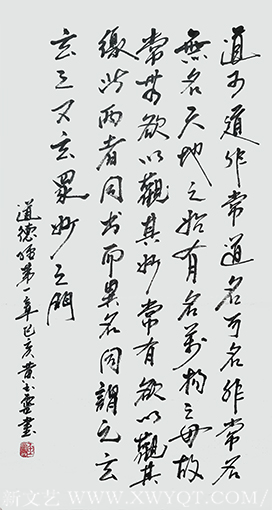 道可道非常道名可名非常名
無名天地之始有名萬物之母故
常無欲以觀其妙常有欲以觀其
徼此兩者同出而異名同謂之玄
玄之又玄眾妙之門
道德經第一章己亥黄書
新文艺 WWW.XWYQT.COM/